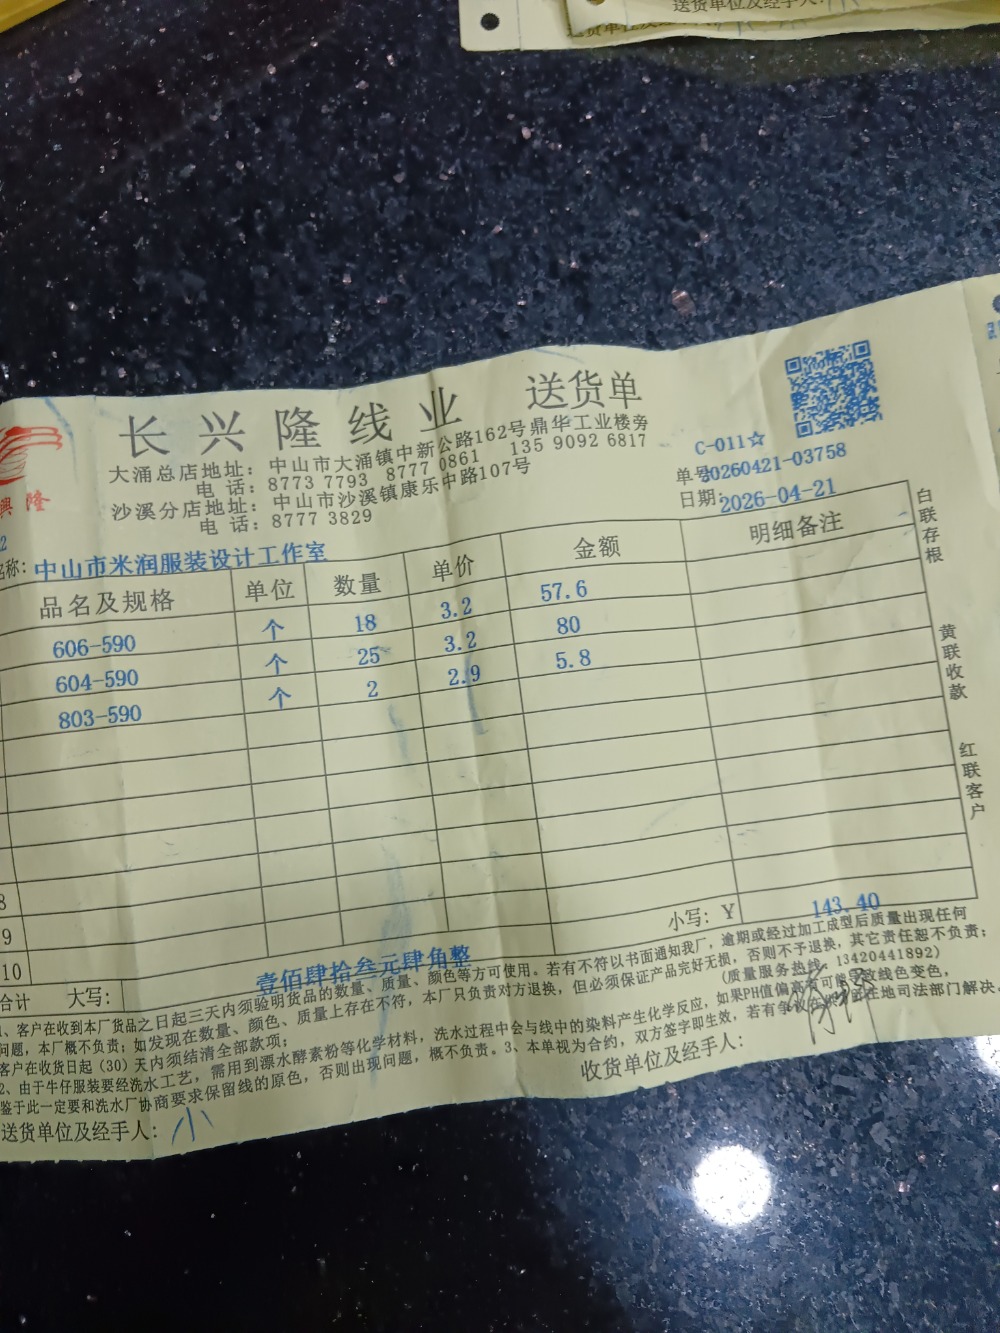 送货单位及经手人:
长兴隆线业 送货单
大涌总店地址: 中山市大涌镇中新公路162号鼎华工业楼旁
电 话: 8773 7793 8777 0861 135 9092 6817
沙溪分店地址: 中山市沙溪镇康乐中路107号
电 话: 8777 3829
興隆
C-011☆
单号 20260421-03758
日期: 2026-04-21
名称: 中山市米润服装设计工作室
品名及规格 单位 数量 单价 金额 明细备注
606-590 个 18 3.2 57.6
604-590 个 25 3.2 80
803-590 个 2 2.9 5.8
8
9
10
小写: ¥ 143.40
合计 大写: 壹佰肆拾叁元肆角整
白联存根
黄联收款
红联客户
1、客户在收到本厂货品之日起三天内须验明货品的数量、质量、颜色等方可使用。若有不符以书面通知我厂, 逾期或经过加工成型后质量出现任何
问题, 本厂概不负责; 如发现在数量、颜色、质量上存在不符, 本厂只负责对方退换, 但必须保证产品完好无损, 否则不予退换, 其它责任恕不负责;
客户在收货日起 (30) 天内须结清全部款项; (质量服务热线: 13420441892)
2、由于牛仔服装要经洗水工艺, 需用到漂水酵素粉等化学材料, 洗水过程中会与线中的染料产生化学反应, 如果PH值偏高有可能导致线色变色,
鉴于此一定要和洗水厂协商要求保留线的原色, 否则出现问题, 概不负责。3、本单视为合约, 双方签字即生效, 若有争议在 所在地司法部门解决。
送货单位及经手人: 小
收货单位及经手人: